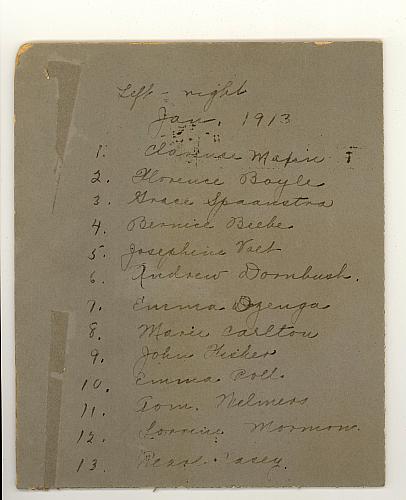 Left - right
Jan. 1913
1. Clarence
2. Florence Boyle
3. Grace Spaanstra
4. Bernice Beebe
5. Josephine
6. Andrew Dornbush.
7. Emma Dzenga
8. Marie Carlton
9. John Ficker
10. Emma Poll.
11. Tom. Welmers
12. Lorraine Mormon.
13. Pearl Casey.